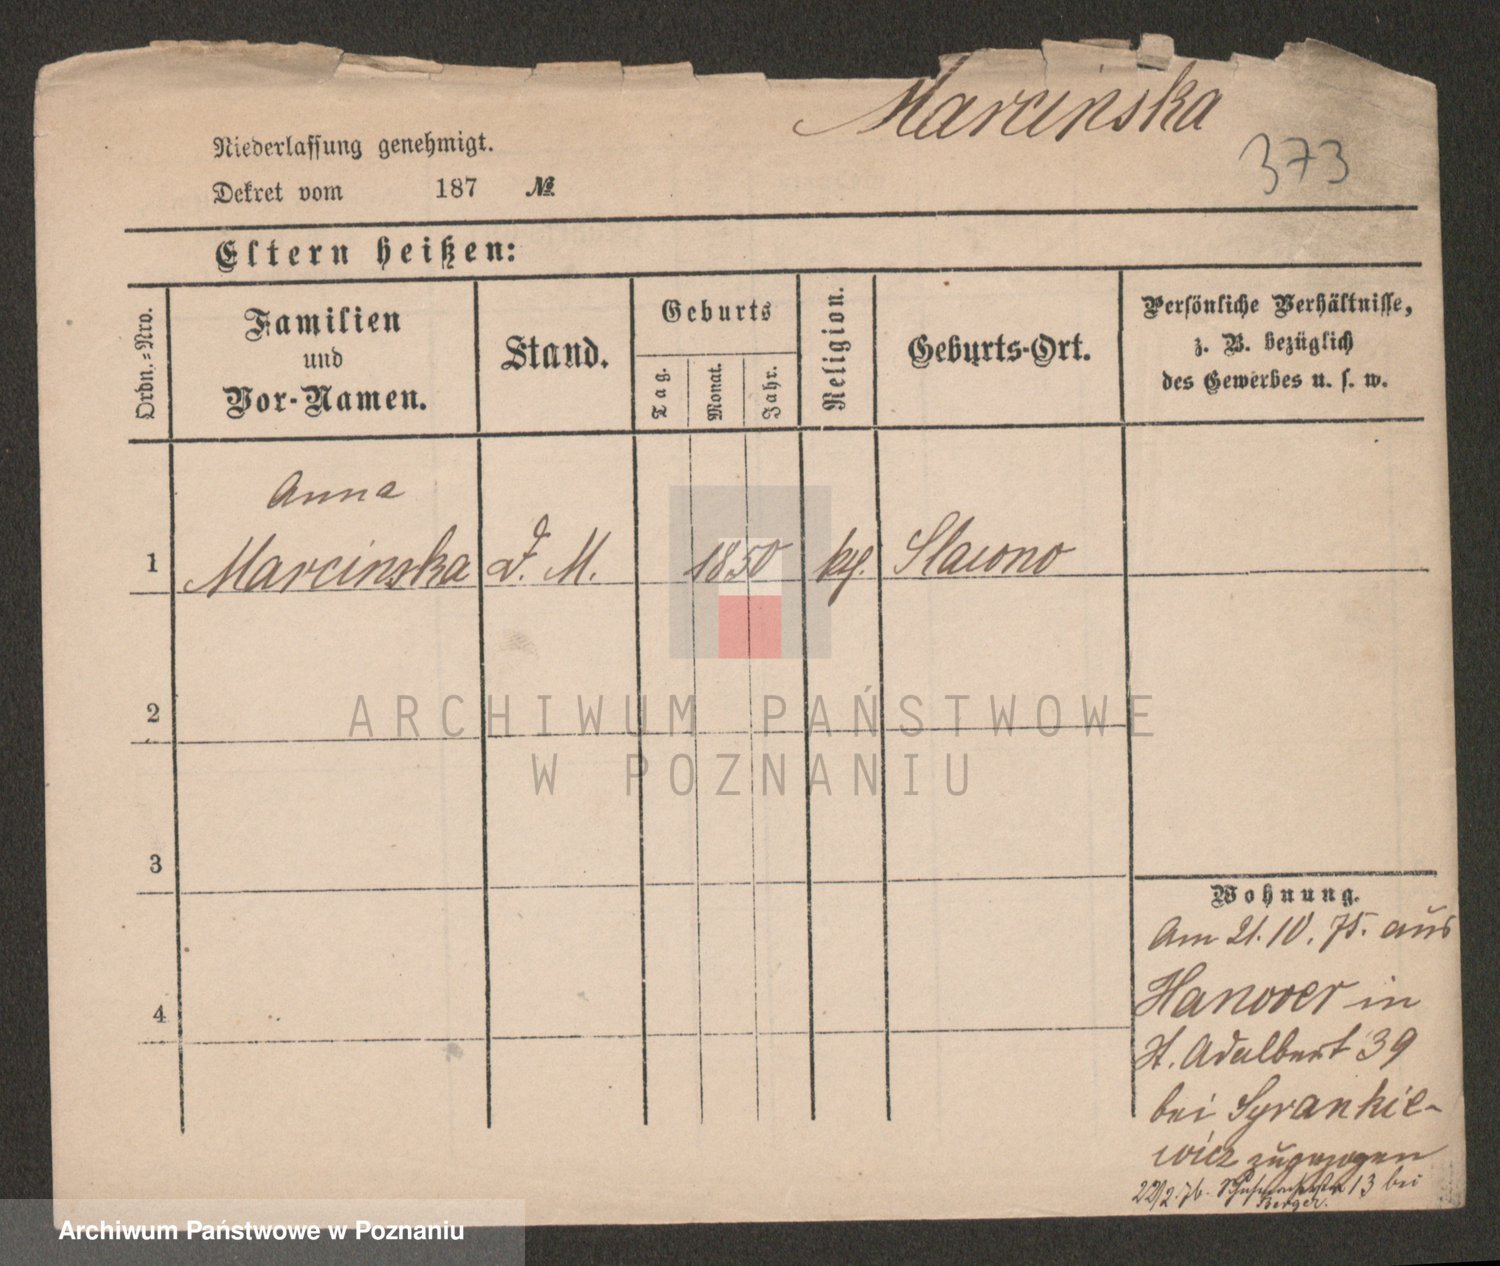 Marcinska
373
Niederlassung genehmigt.
Dekret vom 187 №
Eltern heißen:
Ordn.-Nro.
Familien
und
Vor-Namen.
Stand.
Geburts
Tag.
Monat.
Jahr.
Religion.
Geburts-Ort.
Persönliche Verhältnisse,
z. B. bezüglich
des Gewerbes u. s. w.
Anna
1 Marcinska D. M. 1850 kt. Slawno
2
3
4
Wohnung.
Am 21. 10. 75. aus
Hanover in
St. Adalbert 39
bei Syrankie-
wicz zugezogen
22/2. 76. 13 bei
Berger.
ARCHIWUM PAŃSTWOWE
W POZNANIU
Archiwum Państwowe w Poznaniu